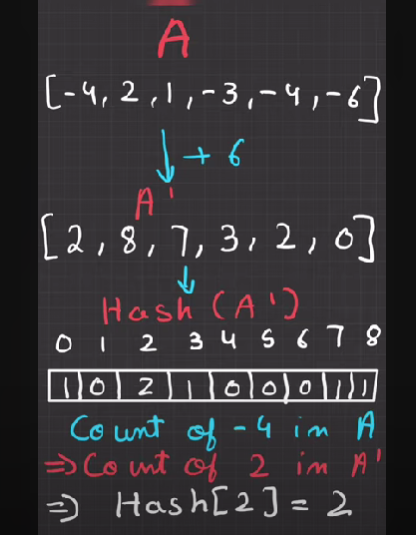 A
[-4, 2, 1, -3, -4, -6]
+ 6
A'
[2, 8, 7, 3, 2, 0]
Hash (A')
0 1 2 3 4 5 6 7 8
1 0 2 1 0 0 0 1 1
Count of -4 in A
=> Count of 2 in A'
=> Hash[2] = 2